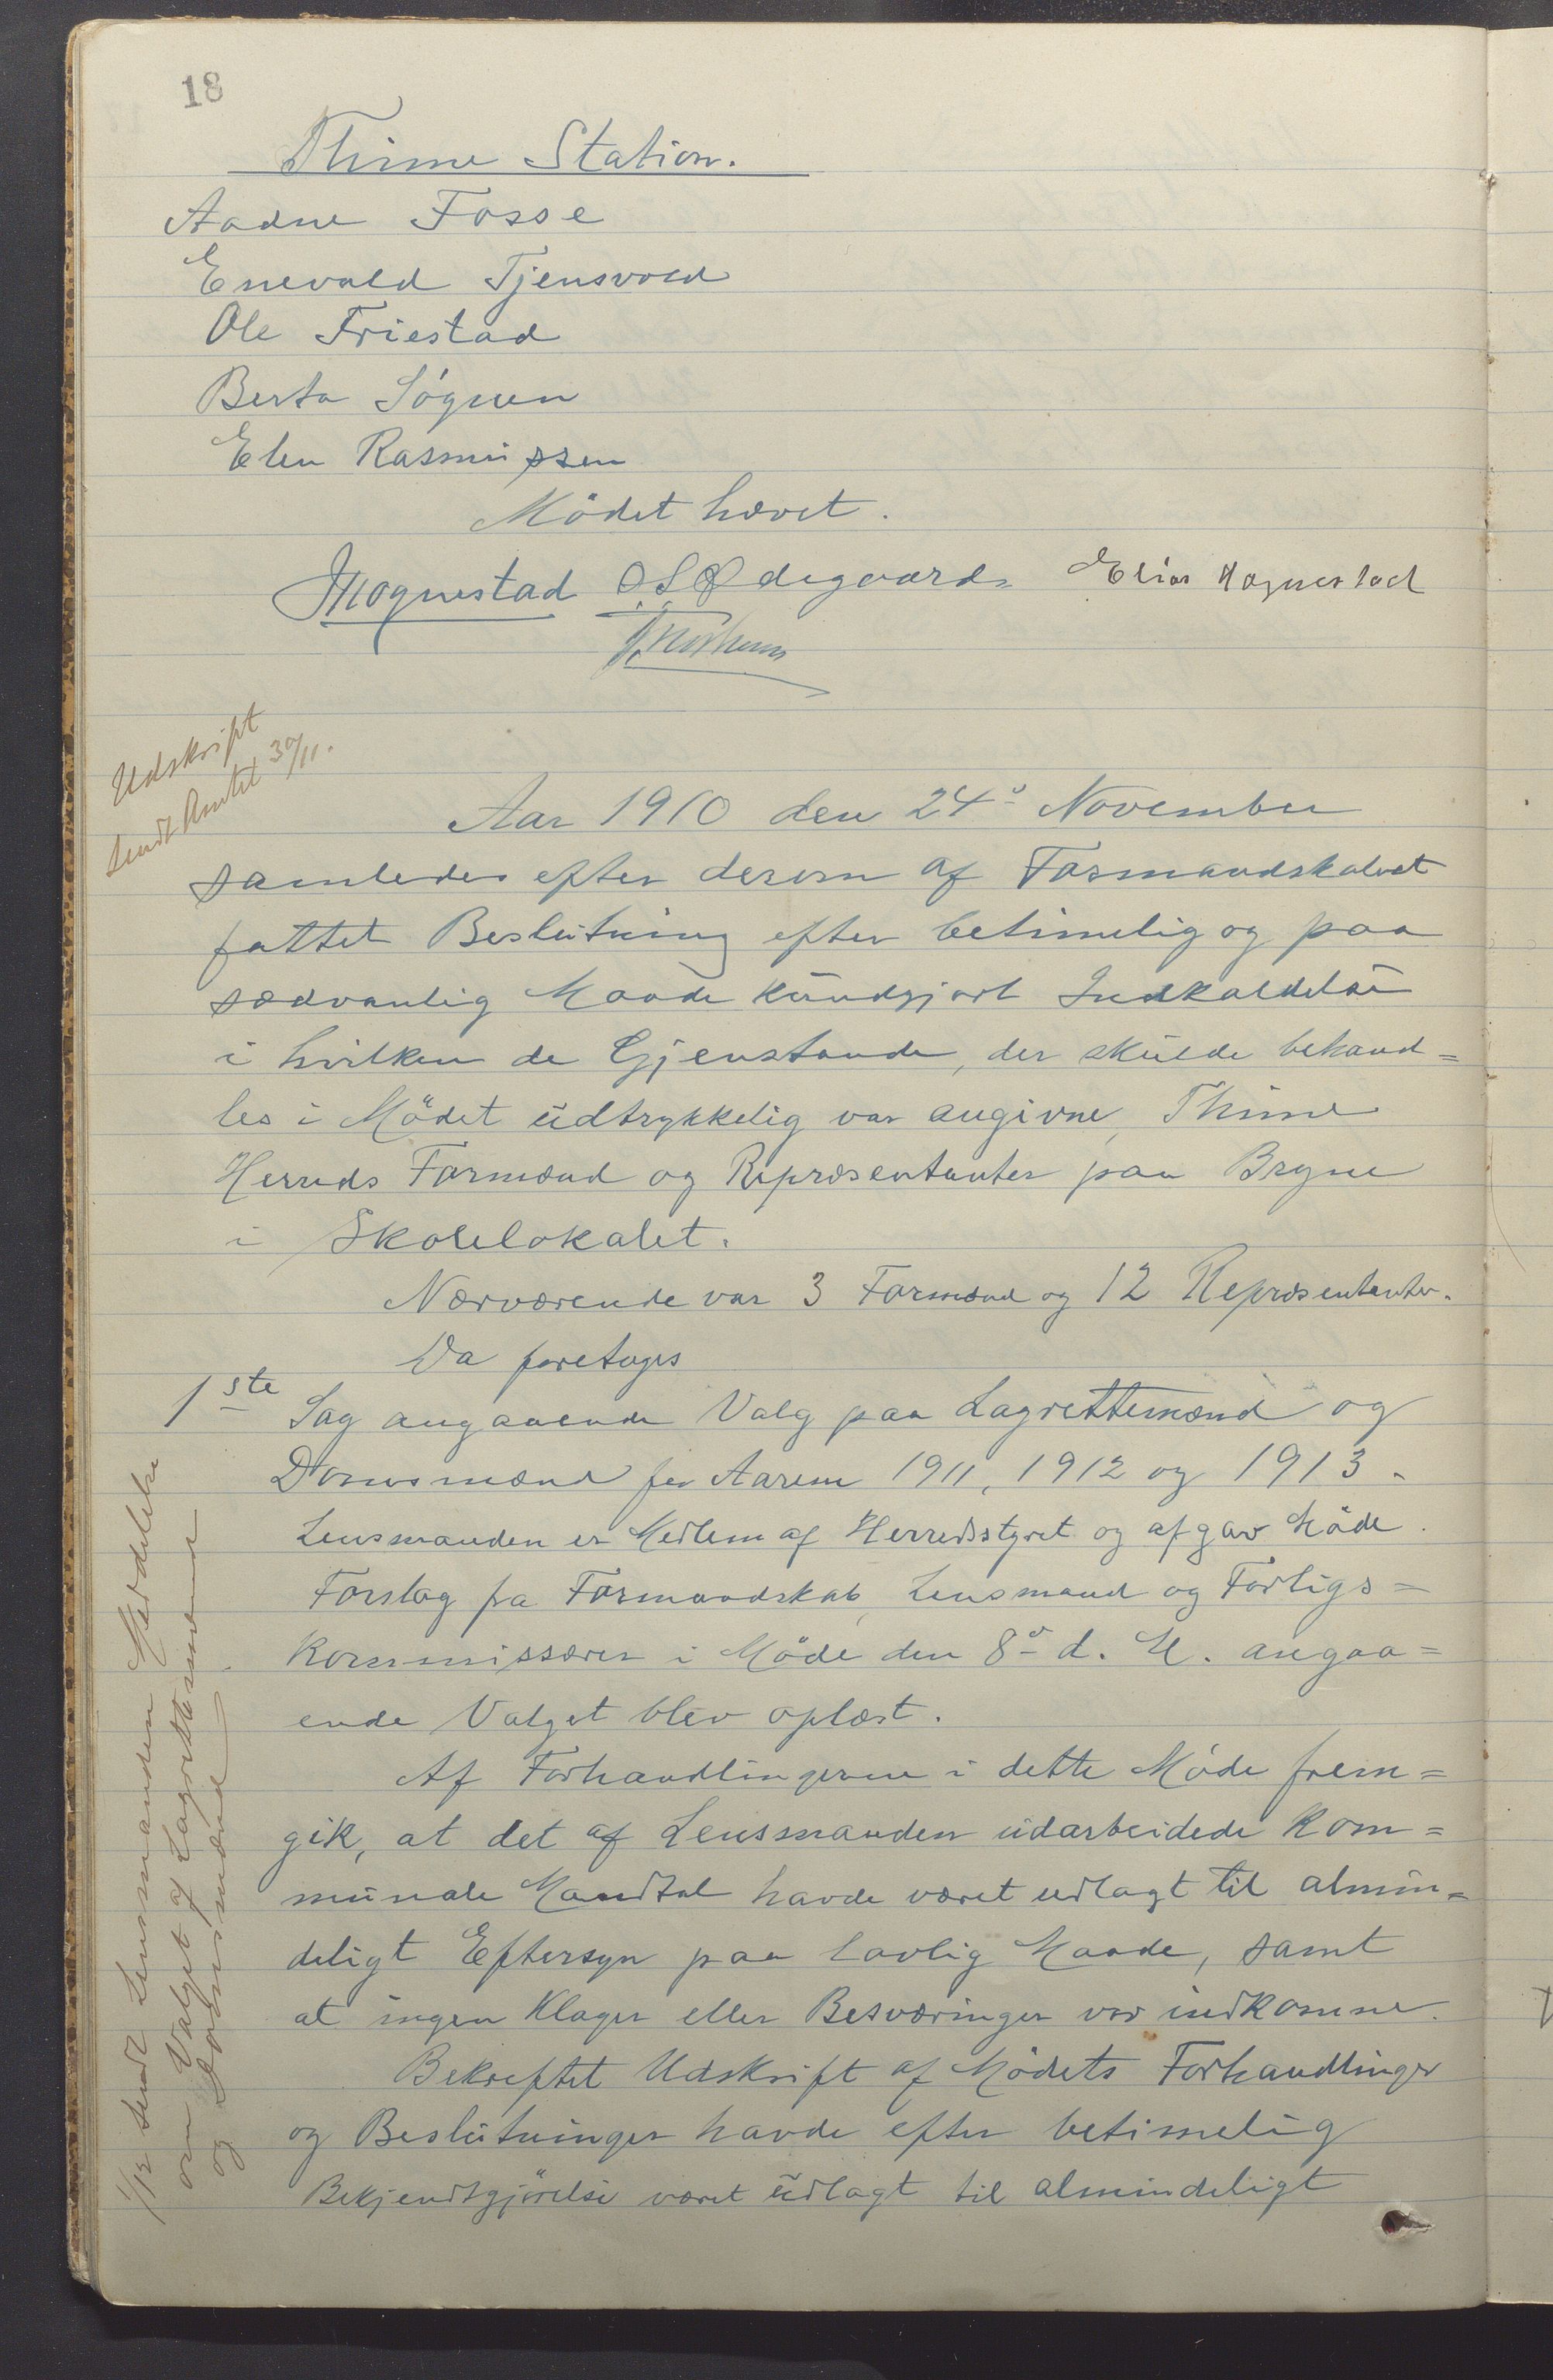 18
Thime Station.
Aadne Fosse
Enevald Tjensvold
Ole Friestad
Berta Sógnen
Elen Rasmussen
Mödet hævet.
Hognestad O S Ødegaard Elias Hognestad
Udskrift
sendt Amtet 30/11.
Aar 1910 den 24de November
samledes efter derom af Formandskabet
fattet Beslutning efter betimelig og paa
sædvanlig Maade kundgjort Indkaldelse
i hvilken de Gjenstande, der skulde behand=
les i Mödet udtrykkelig var angivne, Thime
Herreds Formænd og Repræsentanter paa Bryne
i Skolelokalet.
Nærværende var 3 Formænd og 12 Repræsentanter.
Da foretoges
1ste Sag angaaende Valg paa Lagrettemænd og
Domsmænd for Aarene 1911, 1912 og 1913.
Lensmanden er Medlem af Herredsstyret og afgav Möde.
Forslag fra Formandskab, Lensmand og Forligs=
kommissærer i Möde den 8de d. M. angaa=
ende Valget blev oplæst.
Af Forhandlingerne i dette Möde frem=
gik, at det af Lensmanden udarbeidede kom=
munale Mandtal havde været udlagt til almin=
deligt Eftersyn paa lovlig Maade, samt
at ingen Klager eller Besværinger var indkomne.
Bekræftet Udskrift af Mödets Forhandlinger
og Beslutninger havde efter betimelig
Bekjendtgjörelse været udlagt til almindeligt
1/12 sendt Lensmanden Meddelelse
om Valget af Lagrettemænd
og Domsmænd